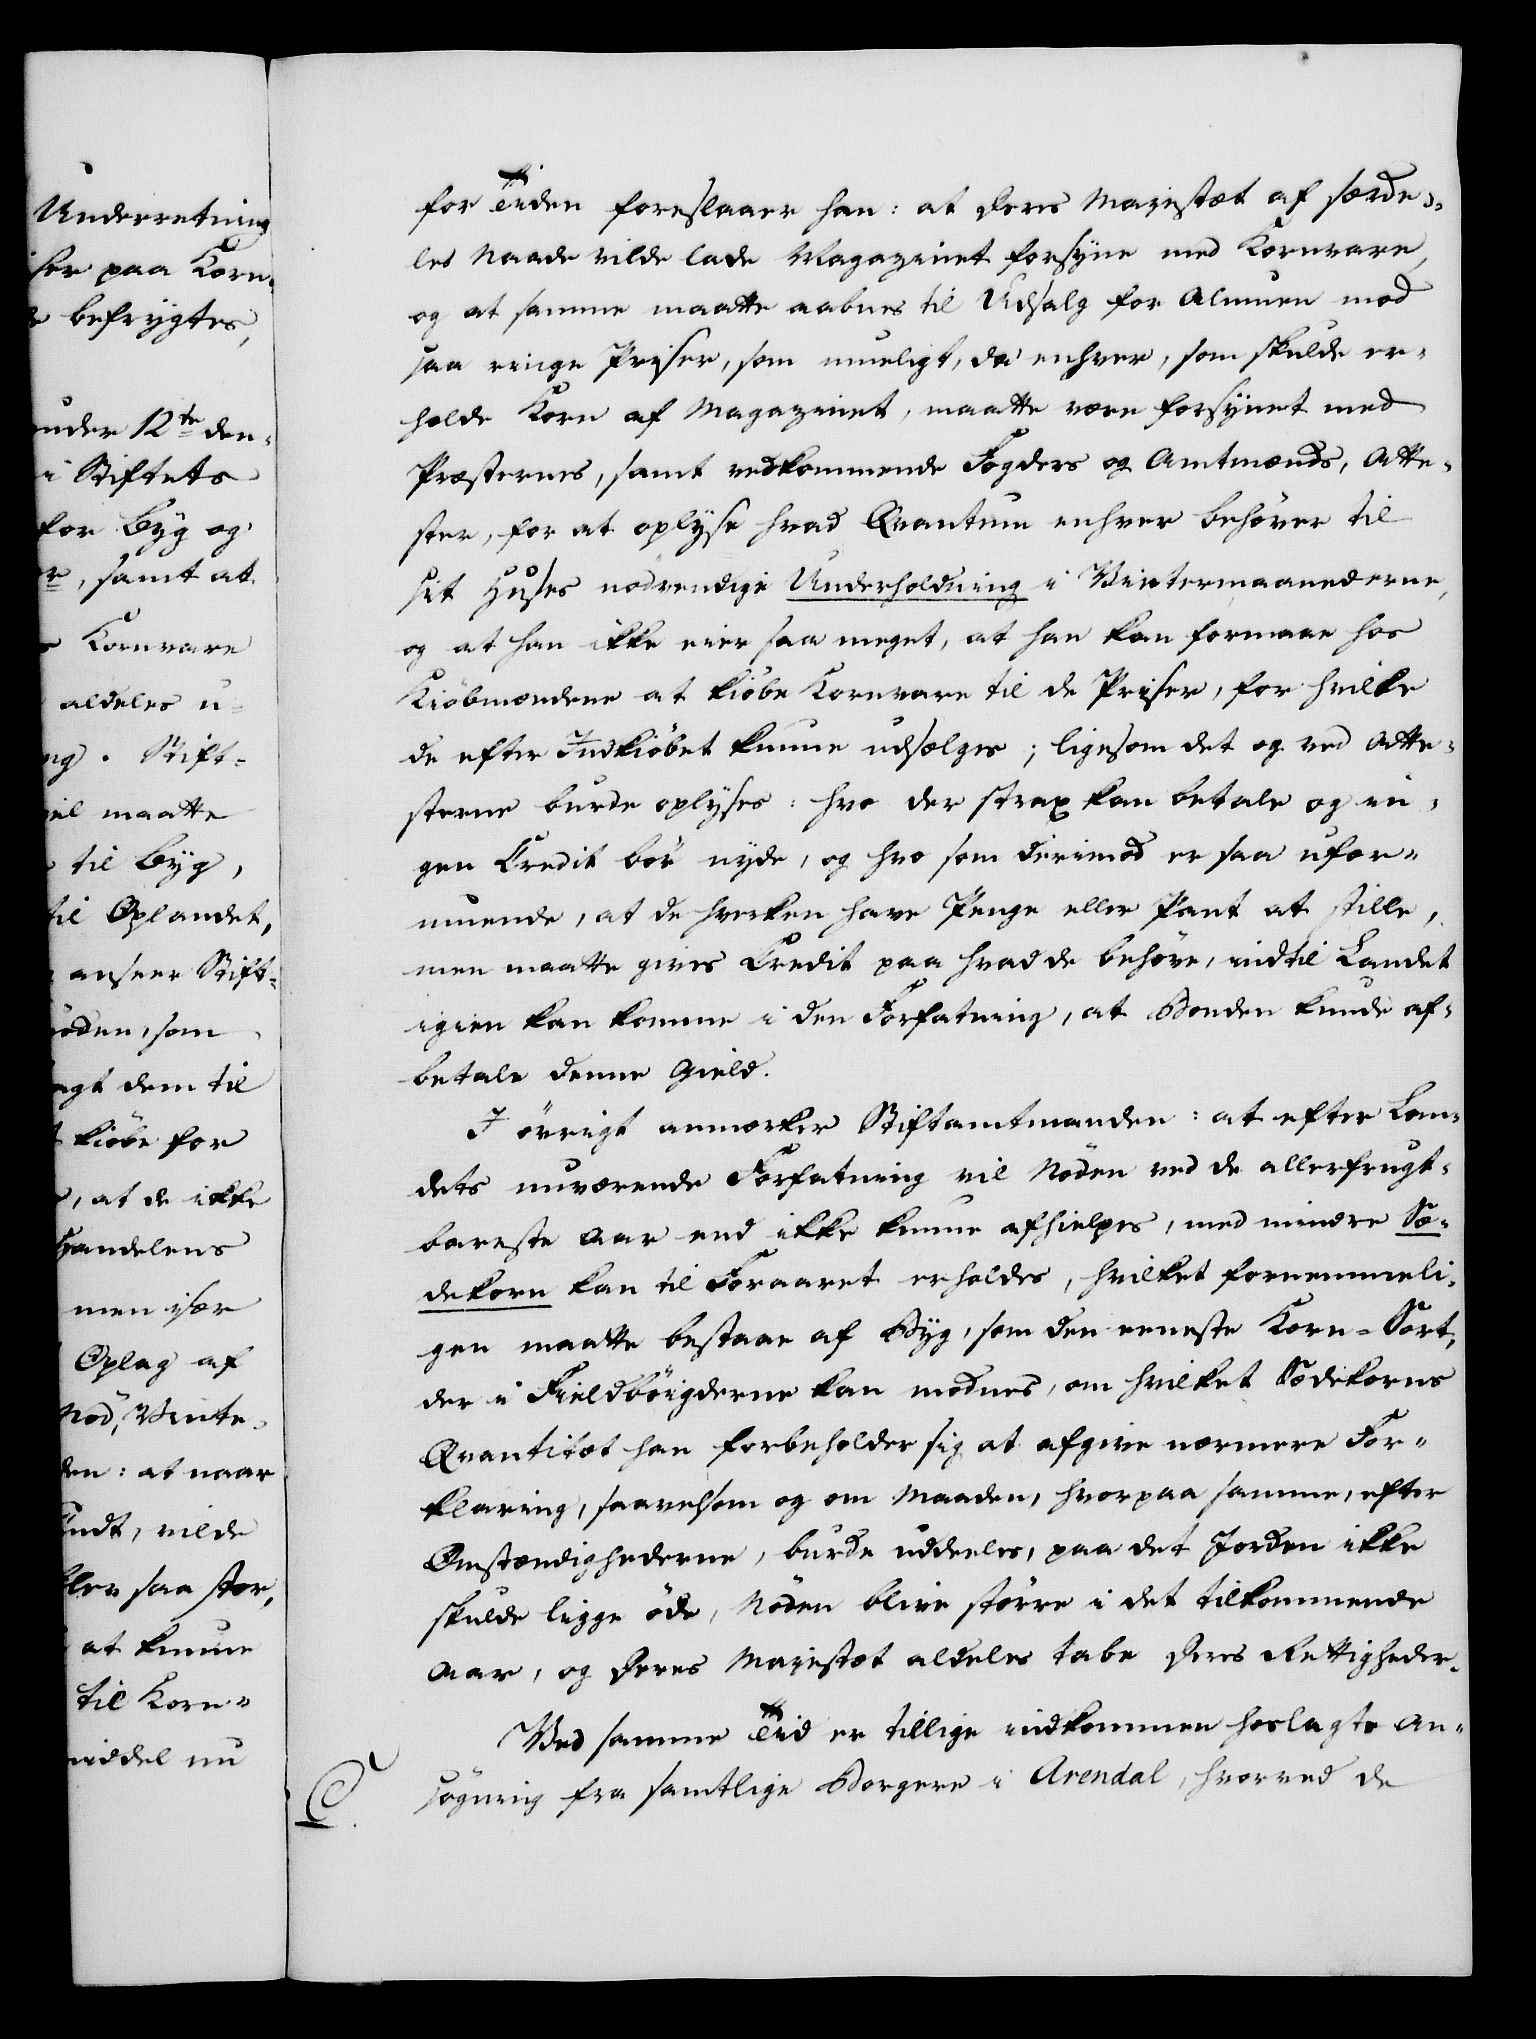 Underretning
ser paa Korn-
befrygtes,
under 12te den-
i Stiftets
for Byg og
, samt at
Kornvare
aldeles u-
ng. Stift-
vel maatte
til Byg,
til Oplandet,
anseer Stift-
öden, som
agt dem til
kiöbe for
, at de ikke
Handelens
men især
Oplag af
Nöd, Vinte-
den: at naar
endt, vilde
blev saa stor,
at kunne
til Korn-
middel nu
for Tiden foreslaaer han: at Deres Majestæt af særde-
les Naade vilde lade Magazinet forsyne med Kornvare,
og at samme maatte aabnes til Udsalg for Almuen mod
saa ringe Priser, som mueligt, da enhver, som skulde er-
holde Korn af Magazinet, maatte være forsynet med
Præsternes, samt vedkommende Fogders og Amtmænds, Atte-
ster, for at oplyse hvad Qvantum enhver behöver til
sit Huses nödvendige Underholdning i Vintermaanederne,
og at han ikke eier saa meget, at han kan formaae hos
Kiöbmændene at kiöbe Kornvare til de Priser, for hvilke
de efter Indkiöbet kunne udsælges; ligesom det og ved Atte-
sterne burde oplyses: hvo der strax kan betale og in-
gen Credit bör nyde, og hvo som derimod er saa ufor-
muende, at de hverken have Penge eller Pant at stille,
men maatte gives Credit paa hvad de behöve, indtil Landet
igien kan komme i den Forfatning, at Bonden kunde af-
betale denne Gield.
I övrigt anmærker Stiftamtmanden: at efter Lan-
dets nuværende Forfatning vil Nöden ved de allerfrugt-
bareste Aar end ikke kunne afhielpes, med mindre Sæ-
dekorn kan til Foraaret erholdes, hvilket fornemmeli-
gen maatte bestaae af Byg, som den eeneste Korn-Sort,
der i Fieldböigderne kan modnes, om hvilket Sædekorns
Qvantitæt han forbeholder sig at afgive nærmere For-
klaring, saavelsom og om Maaden, hvorpaa samme, efter
Omstændighederne, burde uddeeles, paa det Jorden ikke
skulde ligge öde, Nöden blive större i det tilkommende
Aar, og Deres Majestæt aldeles tabe Deres Rettigheder.
Ved samme Tid er tillige indkommen hoslagte An-
C. sögning fra samtlige Borgere i Arendal, hvorved de